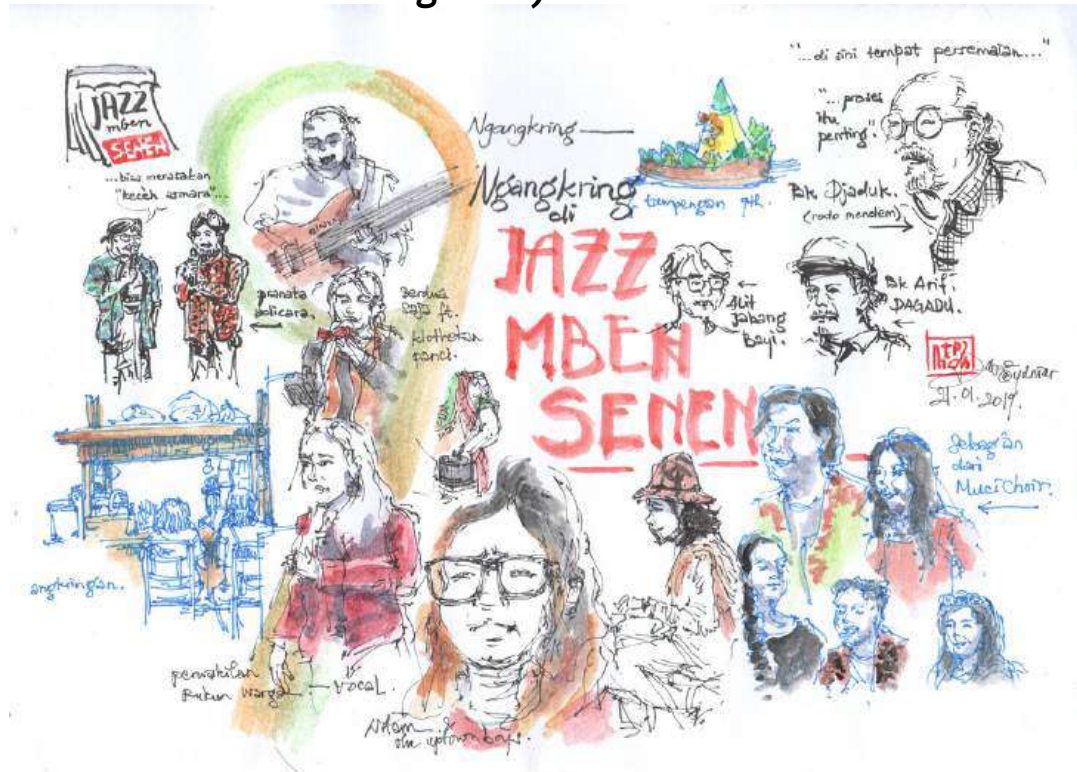 JAZZ
mben
SENEN
...bisa meratakan
"keceh asmara"...
pranata
adicara.
kothekan
panci.
Ngangkring
Ngangkring
di
JAZZ
MBEN
SENEN
tumpengan 9th.
"...di sini tempat persemaian..."
"... proses
itu
penting".
Bk Djaduk.
(rodo mendem)
Alit
Jabang
Bayi.
Bk Arif
DAGADU.
21.01.2019.
Sebagian
dari
Muci Choir.
angkringan.
perwakilan
Rukun Warga
vocal.